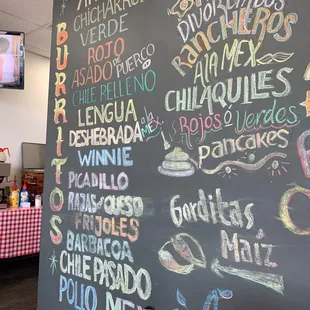 BURRITOS
CHICHARRON
VERDE
ROJO
ASADO DE PUERCO
CHILE RELLENO
LENGUA
DESHEBRADA a la MEX
WINNIE
PICADILLO
RAJAS con QUESO
FRIJOLES
BARBACOA
CHILE PASADO
POLLO MEX
DIVORCIADOS
RANCHEROS
A LA MEX
CHILAQUILES
ROJOS Ó VERDES
PANCAKES
Gorditas
de
Maíz